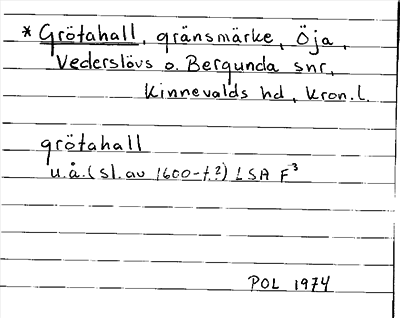 * Grötahall, gränsmärke, Öja,
Vederslövs o. Bergunda snr,
Kinnevalds hd, Kron.l.
grötahall
u.å. (sl. av 1600-t.?) LSA F³
POL 1974